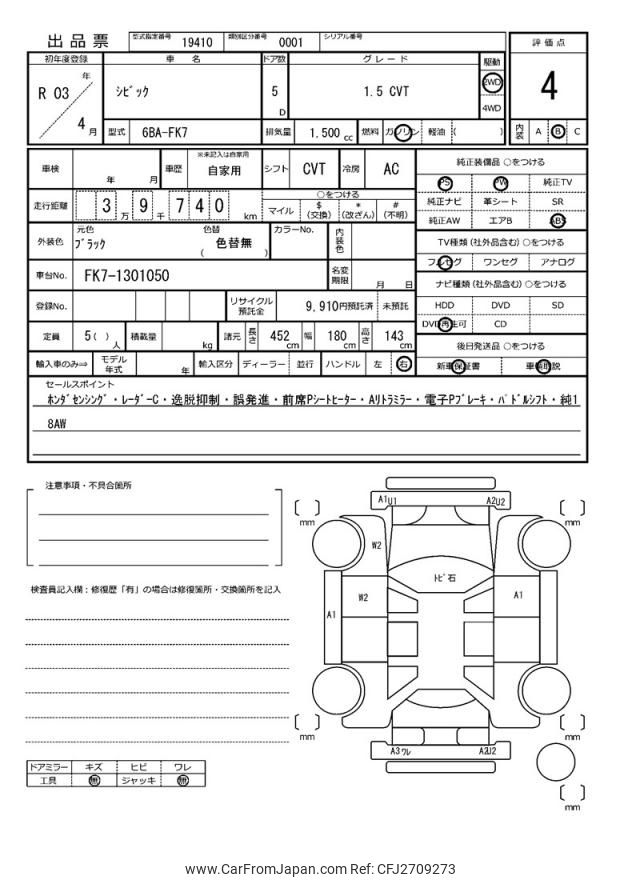 出品票 型式指定番号 19410 類別区分番号 0001 シリアル番号
評価点
4
初年度登録 車名 ドア数 グレード 駆動
R 03 年 4 月
シビック 5 D 1.5 CVT 2WD 4WD
型式 6BA-FK7 排気量 1.500 cc 燃料 ガソリン 軽油 ( )
内装 A B C
車検 年 月 車歴 ※未記入は自家用 自家用 シフト CVT 冷房 AC
走行距離 3 万 9 千 7 4 0 km
○をつける
マイル $ (交換) * (改ざん) # (不明)
外装色 元色 ブラック 色替 ( 色替無 ) カラーNo. 内装色
車台No. FK7-1301050 名変期限 月 日
登録No. リサイクル預託金 9,910円預託済 未預託
定員 5 ( ) 人 積載量 kg 諸元 長さ 452 cm 幅 180 cm 高さ 143 cm
輸入車のみ⇒ モデル年式 年 輸入区分 ディーラー 並行 ハンドル 左 右
純正装備品 ○をつける
PS PW 純正TV
純正ナビ 革シート SR
純正AW エアB ABS
TV種類 (社外品含む) ○をつける
フルセグ ワンセグ アナログ
ナビ種類 (社外品含む) ○をつける
HDD DVD SD
DVD再生可 CD
後日発送品 ○をつける
新車保証書 車輌取説
セールスポイント
ホンダセンシング・レーダーC・逸脱抑制・誤発進・前席Pシートヒーター・Aリトラミラー・電子Pブレーキ・パドルシフト・純1
8AW
注意事項・不具合箇所
検査員記入欄：修復歴「有」の場合は修復箇所・交換箇所を記入
ドアミラー キズ ヒビ ワレ
工具 無 ジャッキ 無
A1 U1 A2 U2
mm mm
W2
トビ石
W2 A1
A1
mm mm
A3 ワレ A2 U2
mm
www.CarFromJapan.com Ref: CFJ2709273